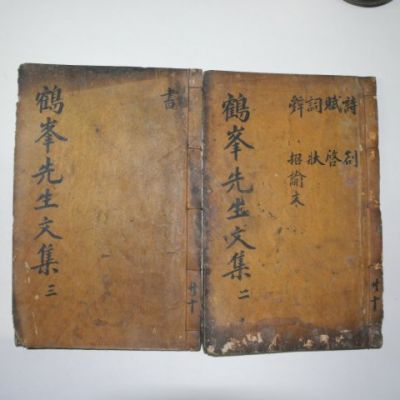 鶴峯先生文集 三
書
共十
鶴峯先生文集 二
詩 剳
賦 啓
詞 狀
辭 招諭文
共十